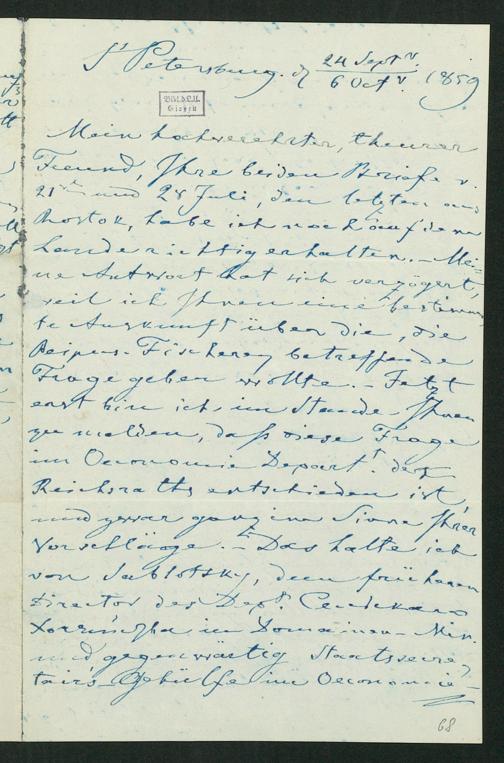 St Petersburg. d 24 Septr. / 6 Octr. 1859
Mein hochverehrter, theurer
Freund, Ihre beiden Briefe v.
21ten und 28 Juli, den letzten aus
Rostok, habe ich noch auf dem
Lande richtig erhalten. – Mei-
ne Antwort hat sich verzögert,
weil ich Ihnen eine bestimm-
te Auskunft über die, die
Peipus-Fischerey betreffende
Frage geben wollte. – Jetzt
erst bin ich im Stande Ihnen
zu melden, daß diese Frage
im Oeconomie Depart. des
Reichsraths entschieden ist,
und zwar ganz im Sinne Ihrer
Vorschläge. – Das habe ich
von Sablotsky, dem früheren
Director des Dept.
im Domainen-Min.
und gegenwärtig Staatssecre-
tairs-Gehülfe im Oeconomie-
68